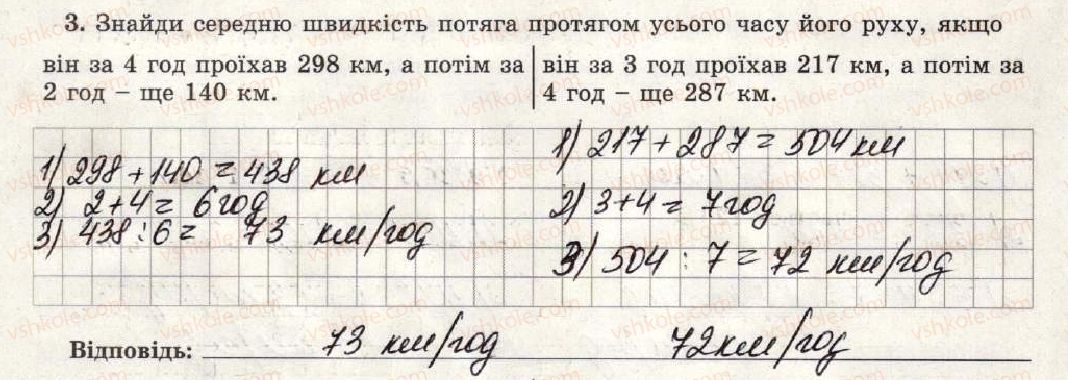 3. Знайди середню швидкість потяга протягом усього часу його руху, якщо
він за 4 год проїхав 298 км, а потім за
2 год – ще 140 км.
він за 3 год проїхав 217 км, а потім за
4 год – ще 287 км.
1) 298 + 140 = 438 км
2) 2 + 4 = 6 год
3) 438 : 6 = 73 км/год
1) 217 + 287 = 504 км
2) 3 + 4 = 7 год
3) 504 : 7 = 72 км/год
Відповідь: 73 км/год 72 км/год